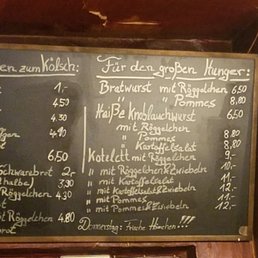 en zum Kölsch:
1,-
4,50
4,90
6,50
chwarzbrot 2,-
halbe) 3,30
Röggelchen 4,30
mit Röggelchen 4,80
rot
Für den großen Hunger:
Bratwurst mit Röggelchen 6,50
" " Pommes 8,80
Haiße Knoblauchwurst 6,50
mit Röggelchen
" Pommes 8,80
" Kartoffelsalat 8,80
Kotelett mit Röggelchen 9,-
" mit Röggelchen & Zwiebeln 10,-
" mit Kartoffelsalat 11,-
" mit Kartoffelsalat & Zwiebeln 12,-
" mit Pommes 11,-
" mit Pommes & Zwiebeln 12,-
Donnerstag: Frische Hämchen!!!